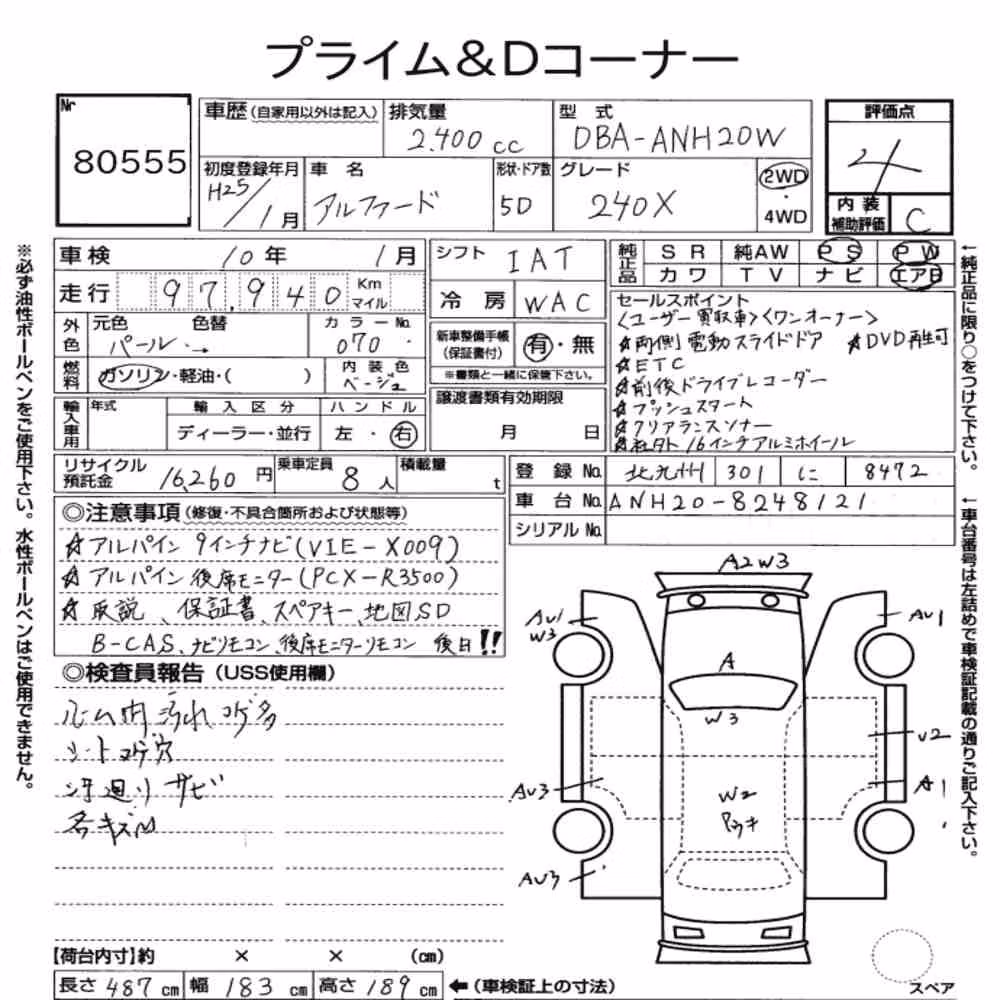 プライム&Dコーナー
Nr 80555
車歴(自家用以外は記入) 排気量 2.400cc 型式 DBA-ANH20W 評価点 4
初度登録年月 H25/1月 車名 アルファード 形状・ドア数 5D グレード 240X 2WD・4WD 内装補助評価 C
車検 10年 1月 シフト IAT 純正品 SR 純AW PS PW
カワ TV ナビ エアB
走行 97,940 Km マイル 冷房 WAC
外色 元色 色替 パール → カラーNo. 070
新車整備手帳(保証書付) 有・無
※書類と一緒に保管下さい。
燃料 ガソリン・軽油・( ) 内装色 ベージュ
譲渡書類有効期限 月 日
輸入車用 年式 輸入区分 ディーラー・並行 ハンドル 左・右
セールスポイント
<ユーザー買取車><ワンオーナー>
☆両側電動スライドドア ☆DVD再生可
☆ETC
☆前後ドライブレコーダー
☆プッシュスタート
☆クリアランスソナー
☆社外16インチアルミホイール
リサイクル預託金 16,260円 乗車定員 8人 積載量 t
登録No. 北九州 301 に 8472
車台No. ANH20-8248121
シリアルNo.
◎注意事項(修復・不具合箇所および状態等)
☆アルパイン 9インチナビ(VIE-X009)
☆アルパイン後席モニター(PCX-R3500)
☆取説、保証書、スペアキー、地図SD
B-CAS、ナビリモコン、後席モニターリモコン 後日!!
◎検査員報告(USS使用欄)
ルーム内汚れコゲ多
シートコゲ穴
下廻りサビ
各キズM
A2W3
AU1
W3
AU1
A
W3
V2
AU3
A1
W2
AU3
【荷台内寸】約 × × (cm)
長さ 487cm 幅 183cm 高さ 189cm ←(車検証上の寸法)
スペア
※必ず油性ボールペンをご使用下さい。水性ボールペンはご使用できません。
←純正品に限り○をつけて下さい。
←車台番号は左詰めで車検証記載の通りご記入下さい。